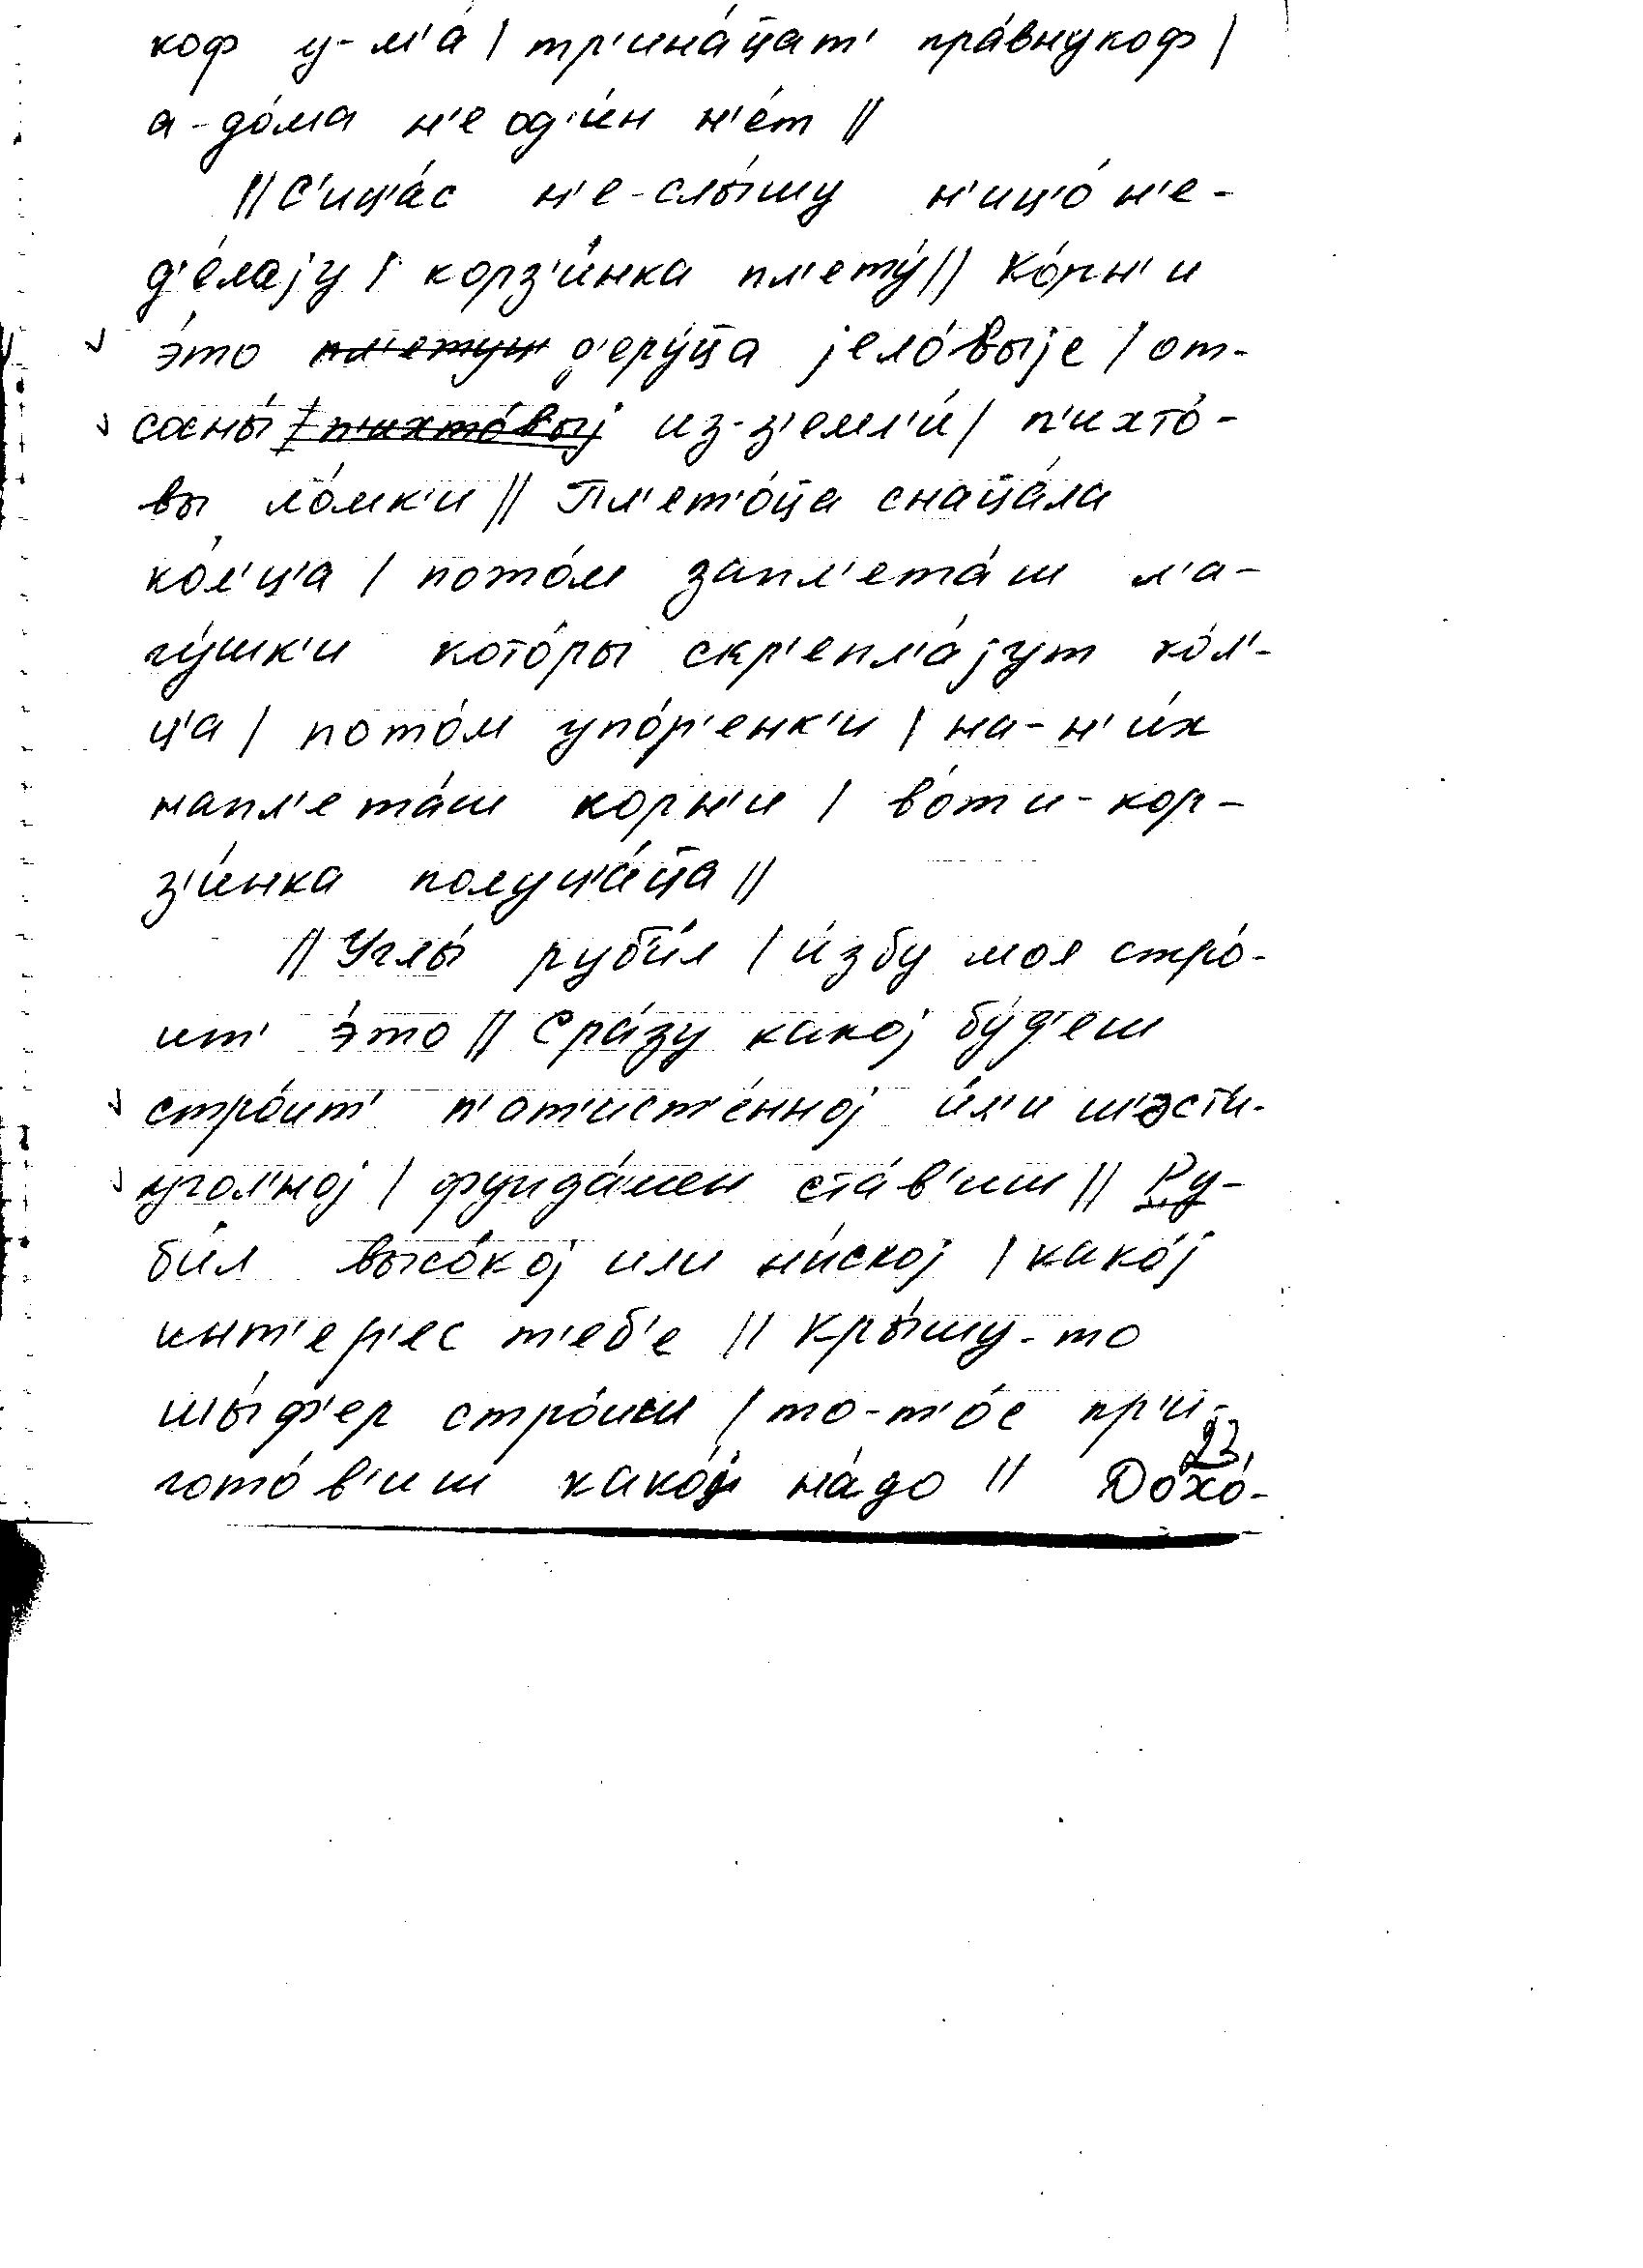 коф у-м'а́ | тр'ина́ц̄ат' пра́внукоф |
а-до́ма н'е од'и́н н'е́т ||
|| С'иц'а́с н'е-слы́шу н'иц'о́ н'е-
д'е́лајy | корз'и́нка пл'ету́ || Ко́рн'и
э́то пл'етуц д'еру́ц̄а јело́выје | от-
сосны́ | п'ихто́выј из-з'емл'и́ | п'ихто́-
вы ло́мк'и || Пл'ет'о́ц̄а снац'а́ла
ко́л'ц'а | пото́м запл'ета́ш л'а-
гу́шк'и кото́ры скр'епл'а́јут ко́л'-
ц'а | пото́м упо́р'енк'и | на-н'и́х
напл'ета́ш корн'и | во́т и-кор-
з'и́нка получ'а́ц̄а ||
|| Углы́ руб'и́л | и́збу моя стро́-
ит' э́то || Сра́зу какој бу́д'еш
стро́ит' п'ат'ист'е́нној и́л'и ш'эсти-
угол'ној | фунда́мен ста́в'иш || Ру-
би́л высо́кој или ни́ској | како́ј
инт'ер'ес т'еб'е || Кры́шу-то
шы́ф'ер стро́иш | то-т'о́с пр'и-
гото́в'иш како́ј на́до || Дохо́-
23